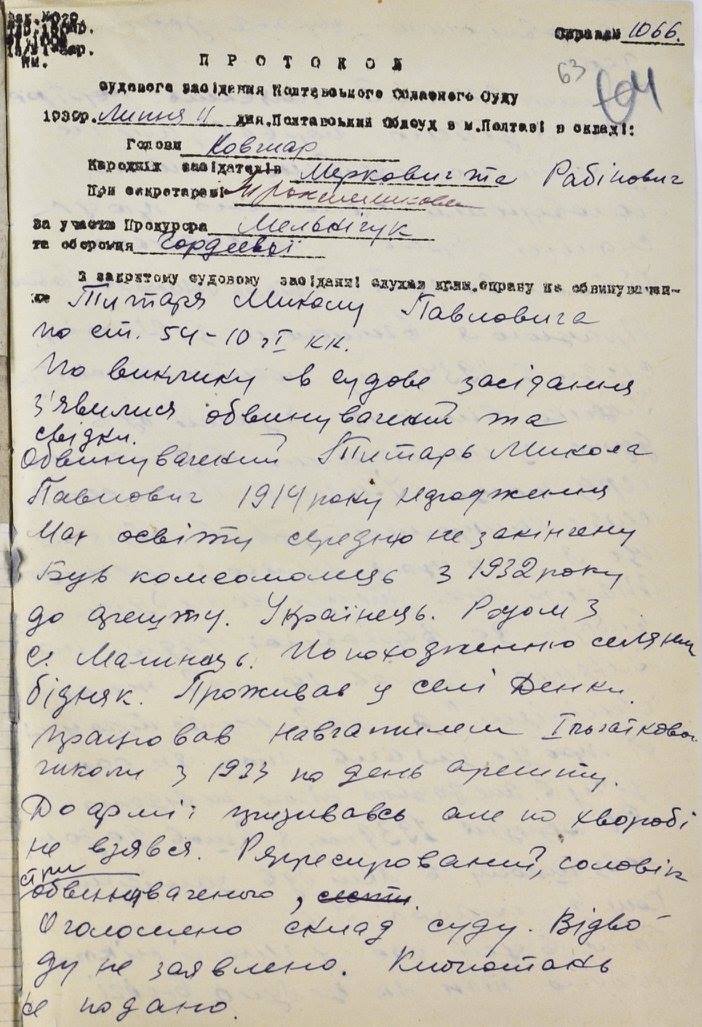 Справа № 1066.
63
ПРОТОКОЛ
судового засідання Полтавського Обласного Суду
1939р. Липня 11 дня, Полтавський Облсуд в м.Полтаві в складі:
Голови Ковшар
Народніх засідателів Меркович та Рабінович
При секретареві
за участю Прокурора Мельничук
та оборонця Гордеевої
В закритому судовому засіданні слухав крим.справу по обвинувачен-
ню Титаря Миколу Павловича
по ст. 54-10 ч I КК.
По виклику в судове засідання
з'явилися обвинувачений та
свідки.
Обвинувачений Титарь Микола
Павлович 1914 року народження
Має освіту середню не закінчену
Був комсомолець з 1932 року
до арешту. Українець. Родом з
с. Малинець. По походженню селянин
бідняк. Проживав у селі Денки.
Працював навчателем Початкової
школи з 1933 по день арешту.
До армії призивавсь але по хворобі
не взявся. Репресирований, чоловік
сестри
обвинуваченого,
Оголошено склад суду. Відво-
ду не заявлено. Клопотань
не подано.